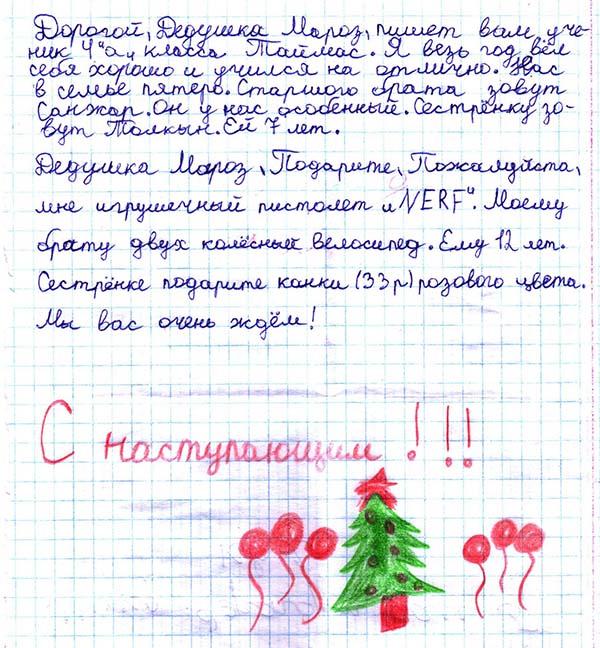 Дорогой, Дедушка Мороз, пишет вам, уче-
ник 4 "а„ класса Таймас. Я везь год вёл
себя хорошо и учился на отлично. Нас
в семье пятеро. Старшого брата зовут
Санжар. Он у нас особенный. Сестрёнку зо-
вут Толкын. Ей 7 лет.
Дедушка Мороз, Подарите, Пожалуйста,
мне игрушечный пистолет „NERF". Моему
брату двух колёсный велосипед. Ему 12 лет.
Сестрёнке подарите каньки (33р) розового цвета.
Мы вас очень ждём!
С наступающим!!!